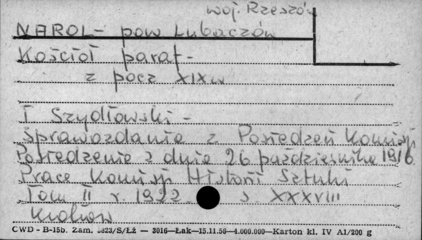 woj. Rzeszów
NAROL - pow Lubaczów
Kościół paraf -
z pocz XIX w
T Szydłowski -
Sprawozdania z Posiedzeń Komisji
Posiedzenie z dnia 26 października 1916
Prace Komisji Historii Sztuki
Tom II r 1922 s XXXVIII
Kraków
CWD - B-15b. Zam. 5823/S/Łż — 3016—Łak—15.11.56—4.000.000—Karton kl. IV A1/200 g